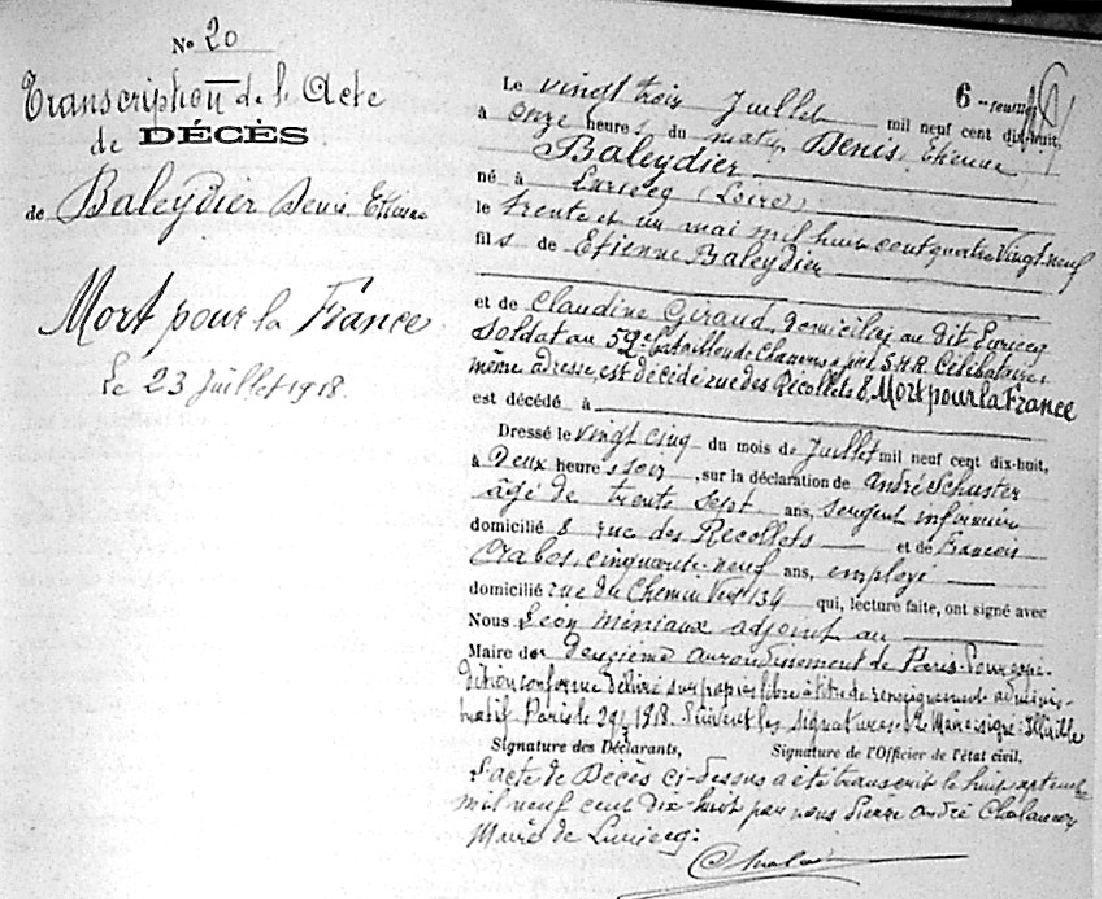 No 20
Transcription de l'Acte
de DÉCÈS
de Baleydier Denis Etienne
Mort pour la France
Le 23 Juillet 1918.
6me feuillet
Le vingt trois Juillet mil neuf cent dix-huit,
à onze heures du matin, Denis, Etienne
Baleydier
né à Luriecq (Loire)
le trente et un mai mil huit cent quatre vingt neuf
fils de Etienne Baleydier
et de Claudine Giraud, domiciliés au dit Luriecq
Soldat au 59e bataillon de Chasseurs à pied S.H.R. Célibataire
même adresse, est décédé rue des Récollets 8, Mort pour la France
est décédé à
Dressé le vingt cinq du mois de Juillet mil neuf cent dix-huit,
à Deux heures soir, sur la déclaration de André Schuster
âgé de trente sept ans, Sergent infirmier
domicilié 8 rue des Recollets et de Francois
Crabos, cinquante-neuf ans, employé
domicilié rue du Chemin Vert 134 qui, lecture faite, ont signé avec
Nous Léon Miniaux adjoint au
Maire du Deuxième arrondissement de Paris. Pour expé-
dition conforme délivré sur papier libre à titre de renseignement adminis-
tratif. Paris le 29/7 1918. Suivent les signatures. Le Maire signé:
Signature des Déclarants, Signature de l'Officier de l'état civil,
L'acte de Décès ci-dessus a été transcrit le huit septembre
mil neuf cent dix-huit par nous Pierre André Chalancon
Maire de Luriecq: